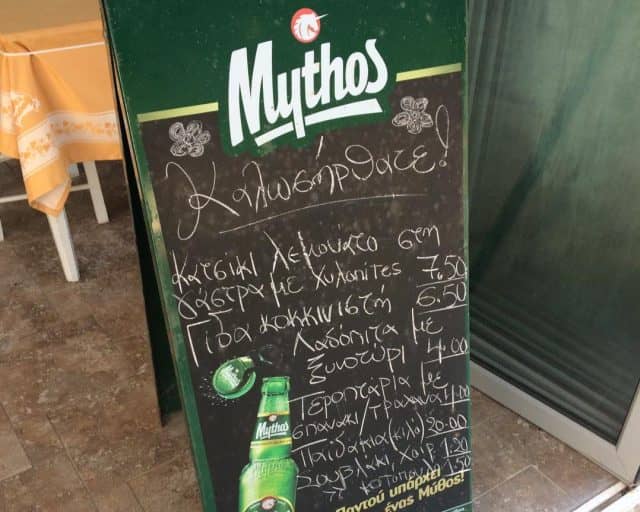 Mythos
Καλωσήρθατε!
Κατσίκι λεμονάτο στη
γάστρα με χυλοπίτες 7.50
Γίδα κοκκινιστή 6.50
Λαδόπιτα με
ξυνοτύρι 4.00
Τεροπτάρια με
σπανάκι/τραχανά 4.00
Παϊδάκια (κιλό) 20.00
Σουβλάκι χοιρ. 1.20
κοτόπουλο 1.50
Mythos
Παντού υπάρχει
ένας Μύθος!